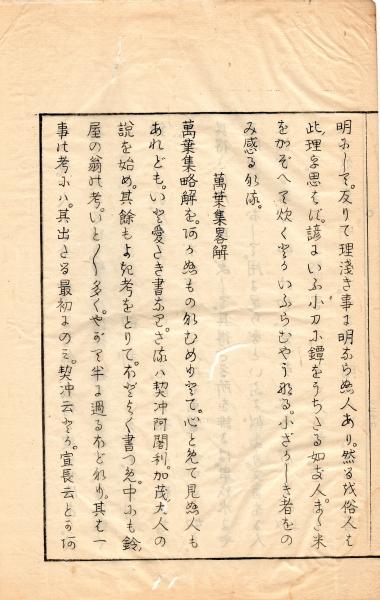 明かにして。反りて理淺き事に明ならぬ人あり。然るを俗人も
此理を思はば。諺にいふ小刀に鐔をうちたる如き人。また米
をかぞへて炊くとかいふらむやうなる。小ざかしき者をの
み感るなほ。
萬葉集畧解
萬葉集略解を。あかぬものなむめりとて。心とめて見ぬ人も
あれども。いと愛たき書なり。さるは契冲阿闍利。加茂大人の
說を始め。其餘もよき考をとりて。ほどよく書つめ。中にも鈴
屋の翁の考。いと〳〵多く。やがて半に過るほどなり。其も一
事の考には。其出さる最初にのミ。契冲云とか。宣長云とかあ